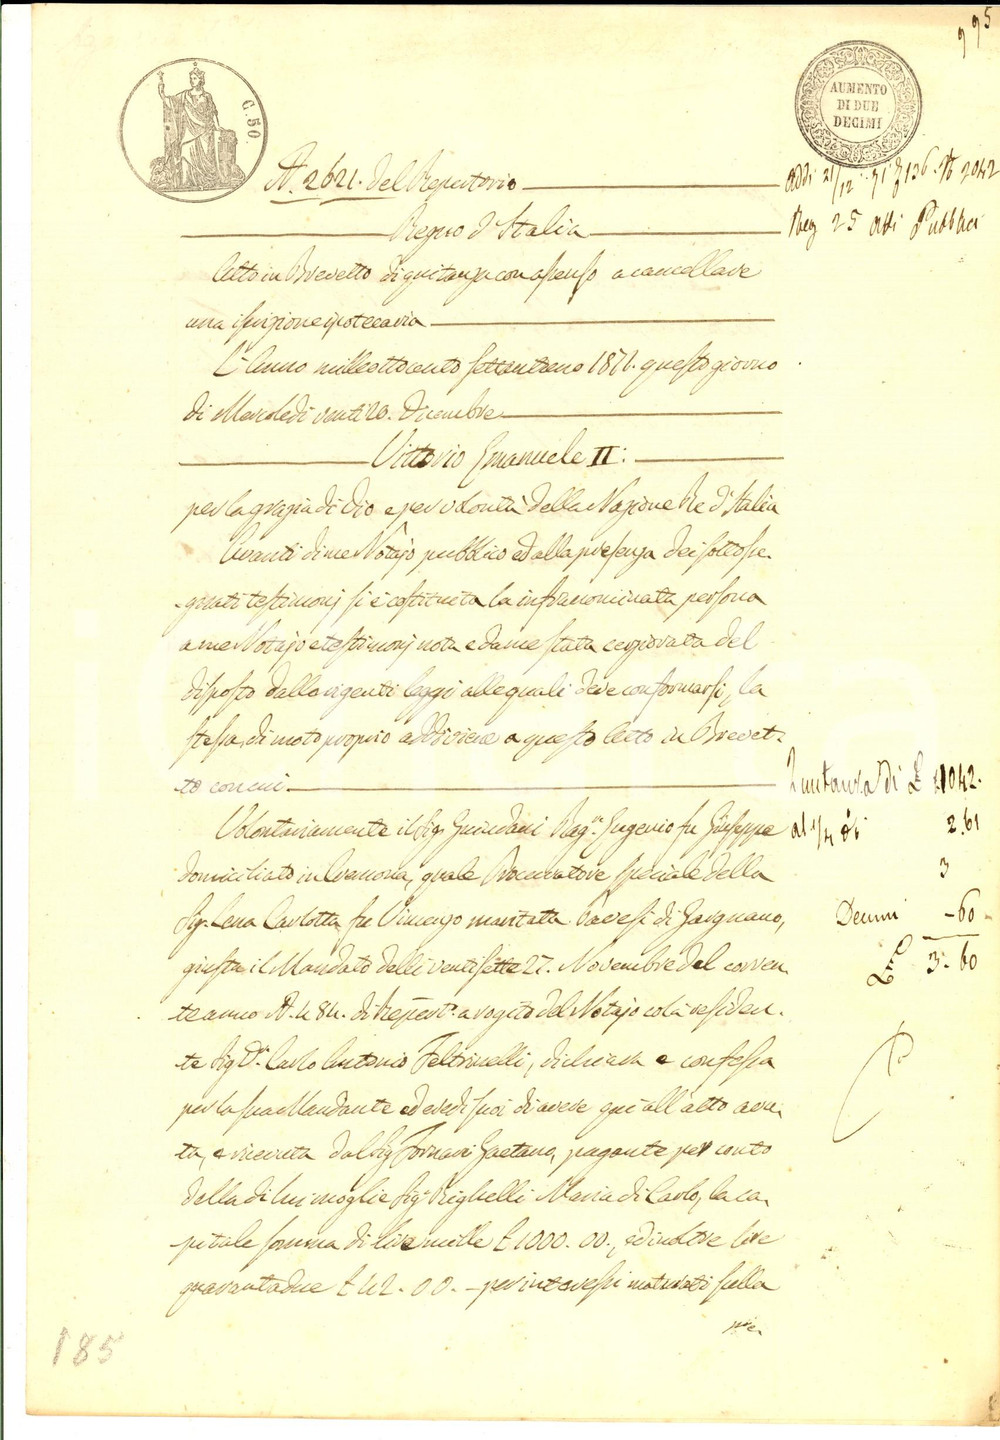 995
C. 50.
AUMENTO
DI DUE
DECIMI
N. 2621. del Repertorio
Addi 21/12 71 N 2042
Regno d'Italia
Reg 25 Atti Pubblici
Atto in Brevetto di quitanza con assenso a cancellare
una iscrizione ipotecaria
L'Anno milleottocento settantuno 1871. questo giorno
di Mercoledi venti 20. Dicembre
Vittorio Emanuele II:
per la grazia di Dio e per volontà della Nazione Re d'Italia
Avanti di me Notajo pubblico ed alla presenza dei sottose-
gnati testimonj si è costituita la infranominata persona
a me Notajo e testimonj nota e da me stata cerziorata del
disposto dalle vigenti leggi alle quali deve conformarsi, la
stessa, di moto proprio addiviene a questo Atto in Brevet-
to con cui
Quitanza di £ 1042.
Volontariamente il Sig. Guindani Rag.r Eugenio fu Giuseppe
al 1/4 2.61
domiciliato in Cremona, quale Procuratore speciale della
3
Sig. Lena Carlotta fu Vincenzo maritata Pavesi di Gargnano,
Decimi -60
giusta il Mandato delli ventisette 27. Novembre del corren-
3.60
te anno N. 484. di Repert.o a rogito del Notajo colà residen-
te Sig. Dr. Carlo Antonio Feltrinelli, dichiara e confessa
per la sua Mandante ed eredi suoi di avere qui all'atto avu-
ta, e ricevuta dal Sig. Fornari Gaetano, pagante per conto
della di lui moglie Sig.a Righelli Maria di Carlo, la ca-
pitale somma di lire mille £ 1000.00., ed inoltre lire
quarantadue £ 42.00. - per interessi maturati sulla
pre.
185